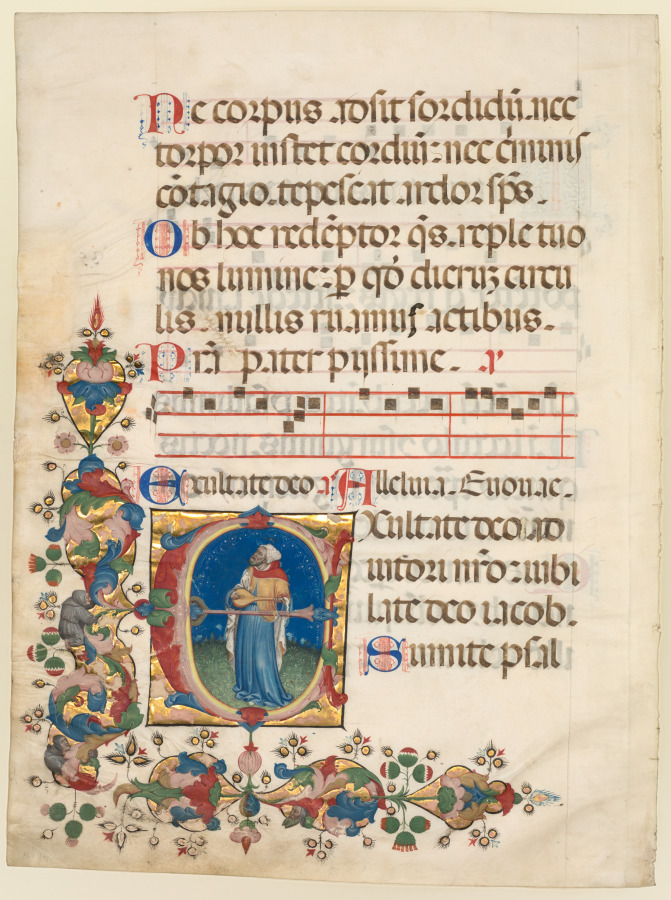 Ne corpus adsit sordidū. nec
torpor instet cordiū: nec c̄minis
cōtagio. tepescat ardor sp̄s.
Ob hoc redēptor q̄s. reple tuo
nos lumine: ꝑ qō dieruꝫ circu
lis. nullis ruamus actibus.
Prā pater pijssime.
Exultate deo a Alleluia. Euouae.
EXultate deo ad
iutori nr̄o: iubi
late deo iacob.
Sumite psal